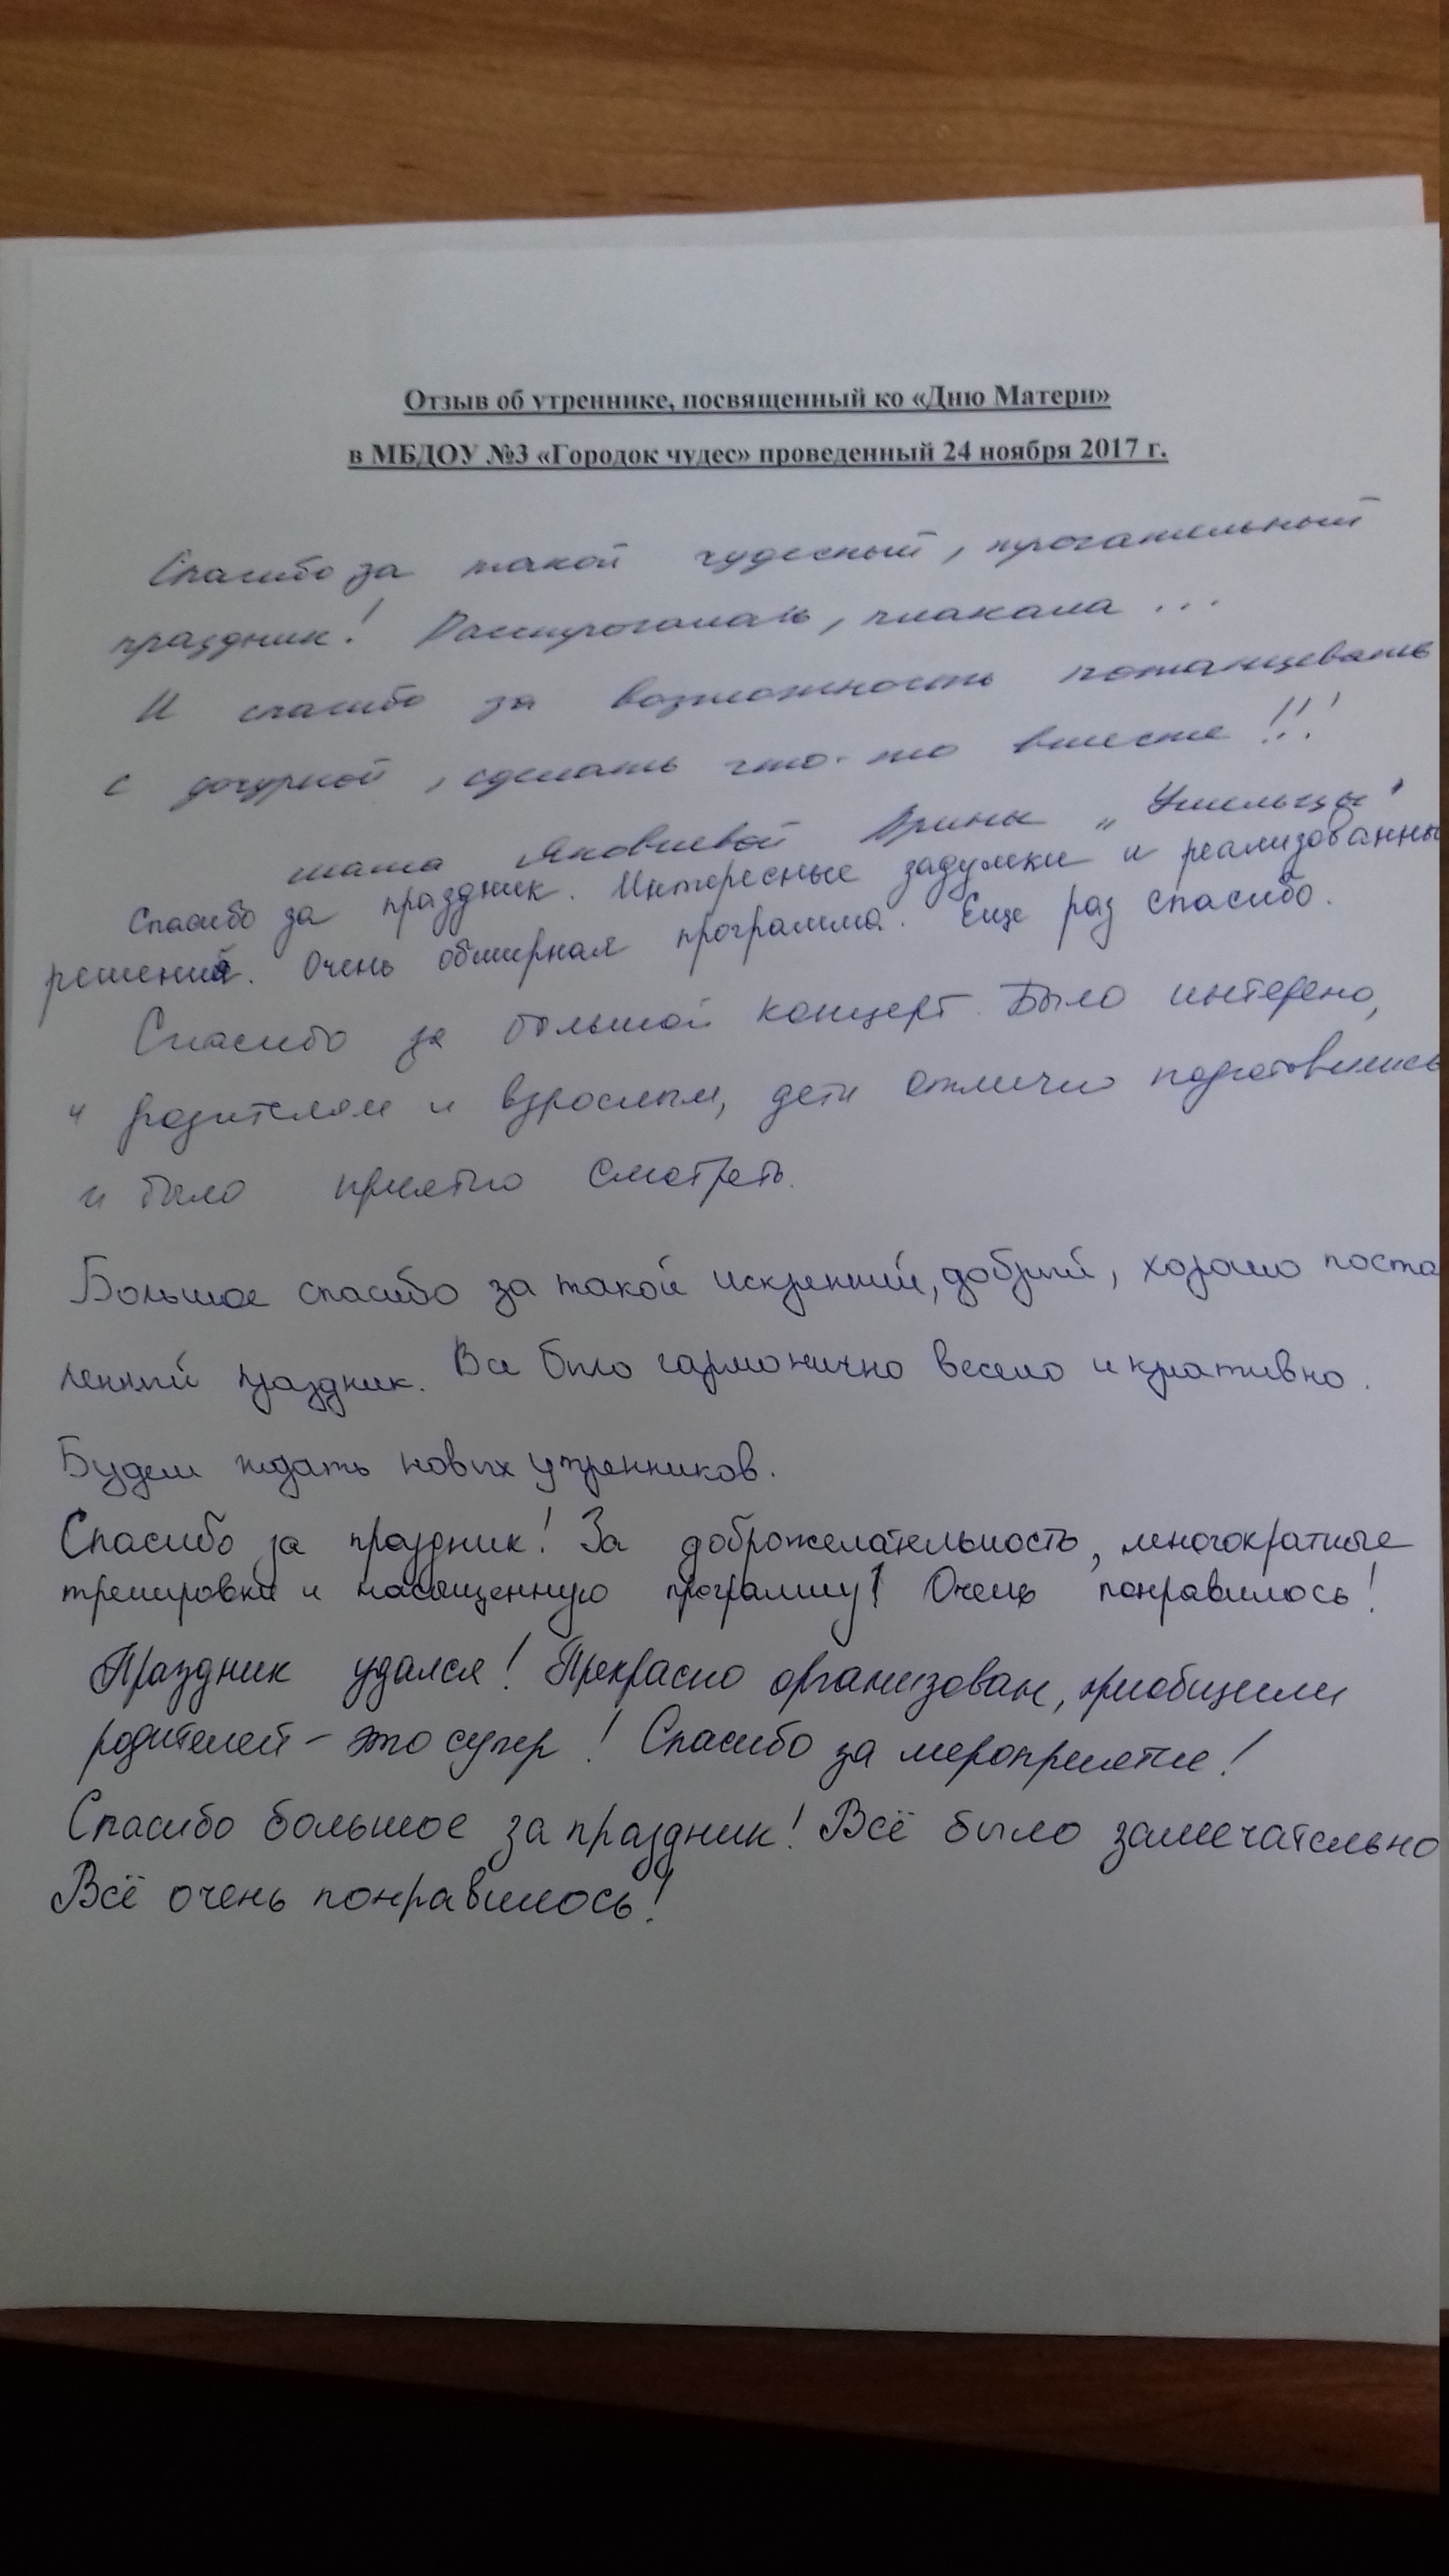 Отзыв об утреннике, посвященный ко «Дню Матери»
в МБДОУ №3 «Городок чудес» проведенный 24 ноября 2017 г.
Спасибо за такой чудесный, трогательный
праздник! Растрогалась, плакала ...
И спасибо за возможность потанцевать
с дочуркой, сделать что-то вместе!!!
мама Яковлевой Арины „Умельцы"
Спасибо за праздник. Интересные задумки и реализованны
решения. Очень обширная программа. Еще раз спасибо.
Спасибо за большой концерт. Было интерено,
и родителям и взрослым, дети отлично подготовились
и было приятно смотреть.
Большое спасибо за такой искренний, добрый, хорошо поста
ленный праздник. Все было гармонично весело и креативно.
Будем ждать новых утренников.
Спасибо за праздник! За доброжелательность, многократные
тренировки и насыщенную программу! Очень понравилось!
Праздник удался! Прекрасно организован, приобщили
родителей - это супер! Спасибо за мероприятие!
Спасибо большое за праздник! Всё было замечательно
Всё очень понравилось!